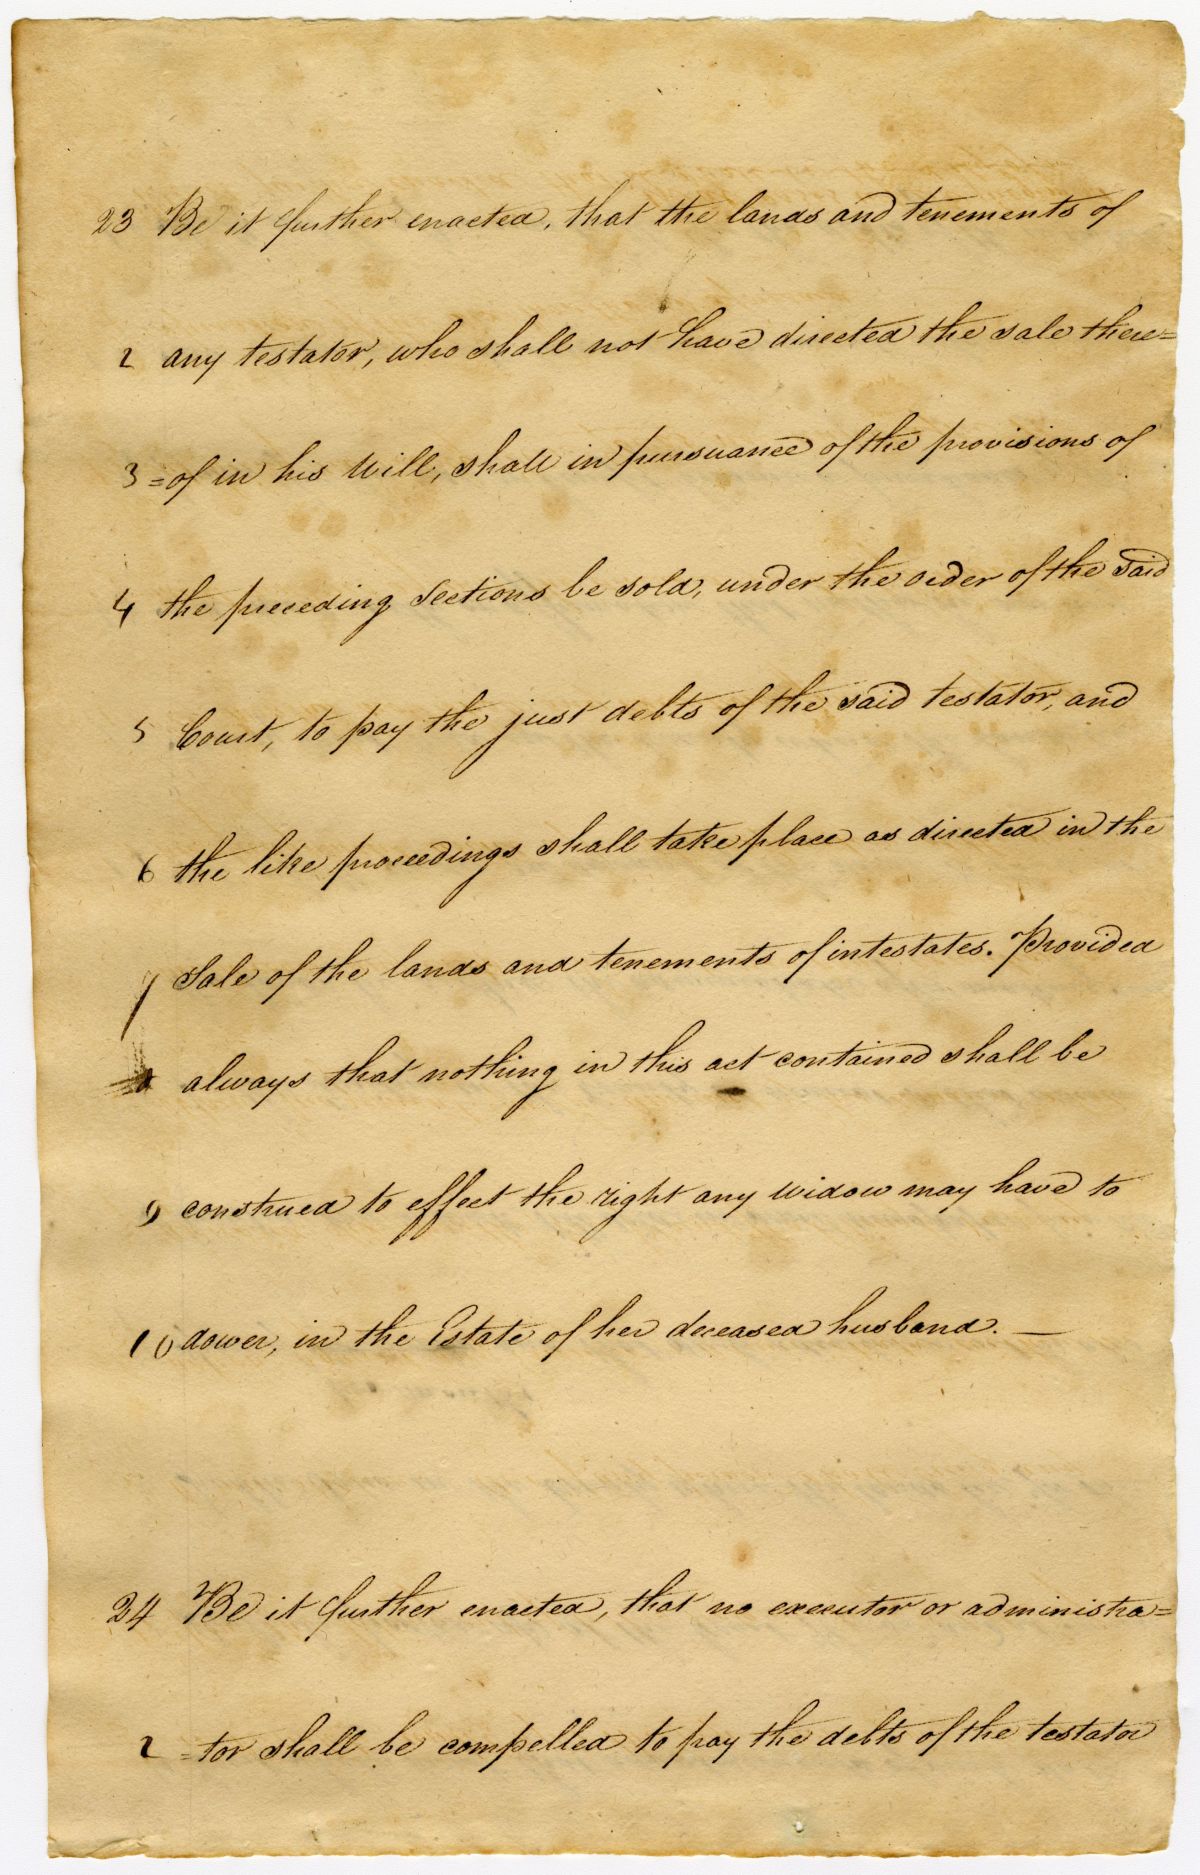 23 Be it further enacted, that the lands and tenements of
2 any testator, who shall not have directed the sale there=
3 =of in his Will, shall in pursuance of the provisions of
4 the preceding Sections be sold, under the order of the said
5 Court, to pay the just debts of the said testator, and
6 the like proceedings shall take place as directed in the
7 Sale of the lands and tenements of intestates. Provided
8 always that nothing in this act contained shall be
9 construed to effect the right any widow may have to
10 dower, in the Estate of her deceased husband. —
24 Be it further enacted, that no executor or administra=
2 =tor shall be compelled to pay the debts of the testator